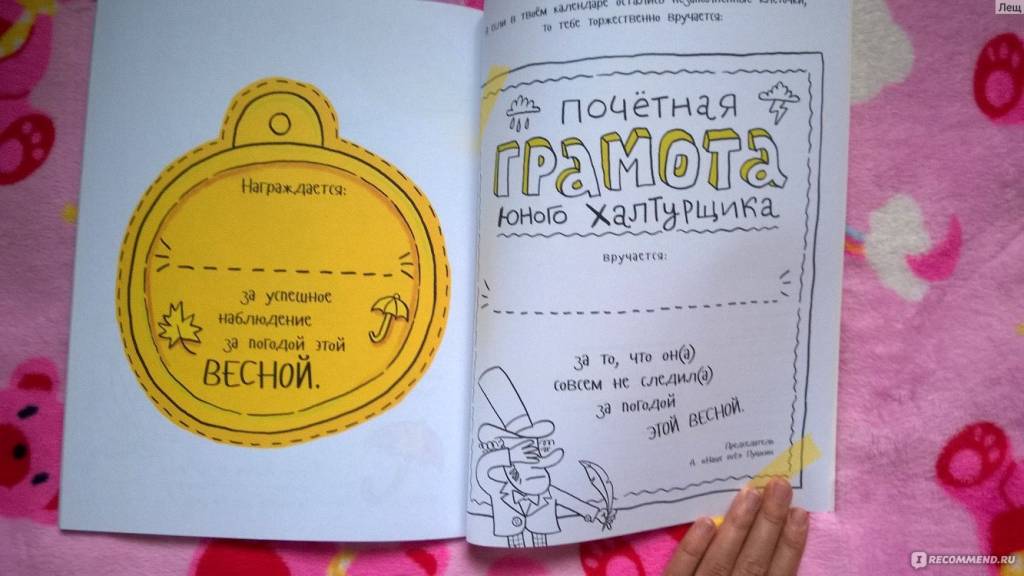 Награждается:
за успешное
наблюдение
за погодой этой
ВЕСНОЙ.
если в твоём календаре остались незаполненные клеточки,
то тебе торжественно вручается:
ПОЧЁТНАЯ
ГРАМОТА
юного халтурщика
вручается:
за то, что он(а)
совсем не следил(а)
за погодой
ЭТОЙ ВЕСНОЙ.
Председатель
А. «Наше всё» Пушкин
Лещ
IRECOMMEND.RU